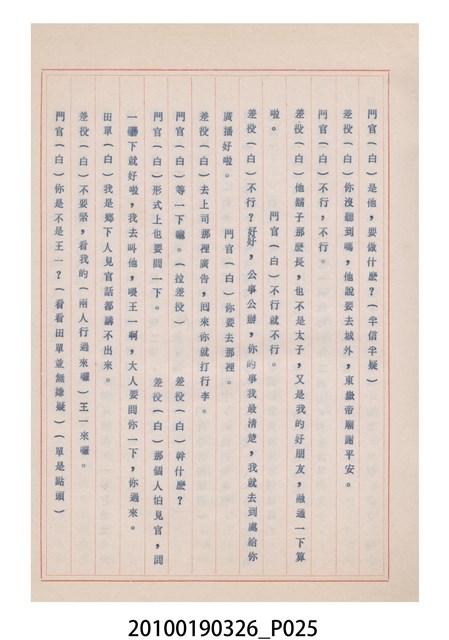 門官（白）是他，要做什麽？（半信半疑）
差役（白）你沒聽到嗎，他說要去城外，東嶽帝廟謝平安。
門官（白）不行，不行。
差役（白）他鬍子那麽長，也不是太子，又是我的好朋友，融通一下算
啦。　　　　門官（白）不行就不行。
差役（白）不行？好好，公事公辦，你的事我最清楚，我就去到處給你
廣播好啦。　　　　門官（白）你要去那裡。
差役（白）去上司那裡廣告，回來你就打行李。
門官（白）等一下嘛。（拉差役）　　　　差役（白）幹什麽？
門官（白）形式上也要問一下。　　　　差役（白）那個人怕見官，問
一下就好啦，我去叫他，喂王一啊，大人要問你一下，你過來。
田單（白）我是鄉下人見官話都講不出來。
差役（白）不要緊，看我的（兩人行過來囉）王一來囉。
門官（白）你是不是王一？（看看田單並無嫌疑）（單是點頭）
20100190326_P025